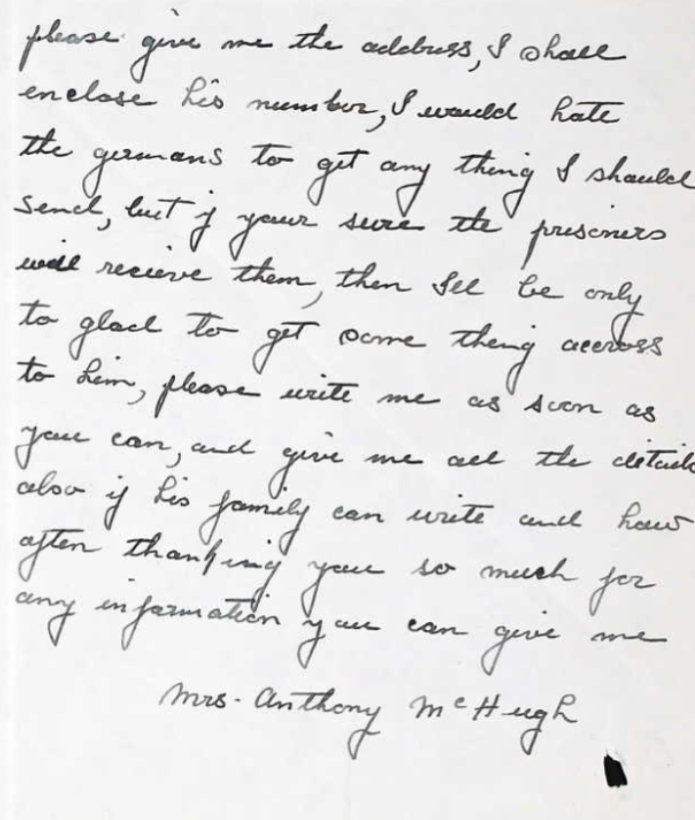 please give me the address, I shall
enclose his number, I would hate
the germans to get any thing I should
send, but if your sure the prisoners
will recieve them, then Ill be only
to glad to get some thing accross
to him, please write me as soon as
you can, and give me all the details
also if his family can write and how
often thanking you so much for
any information you can give me
Mrs. Anthony McHugh